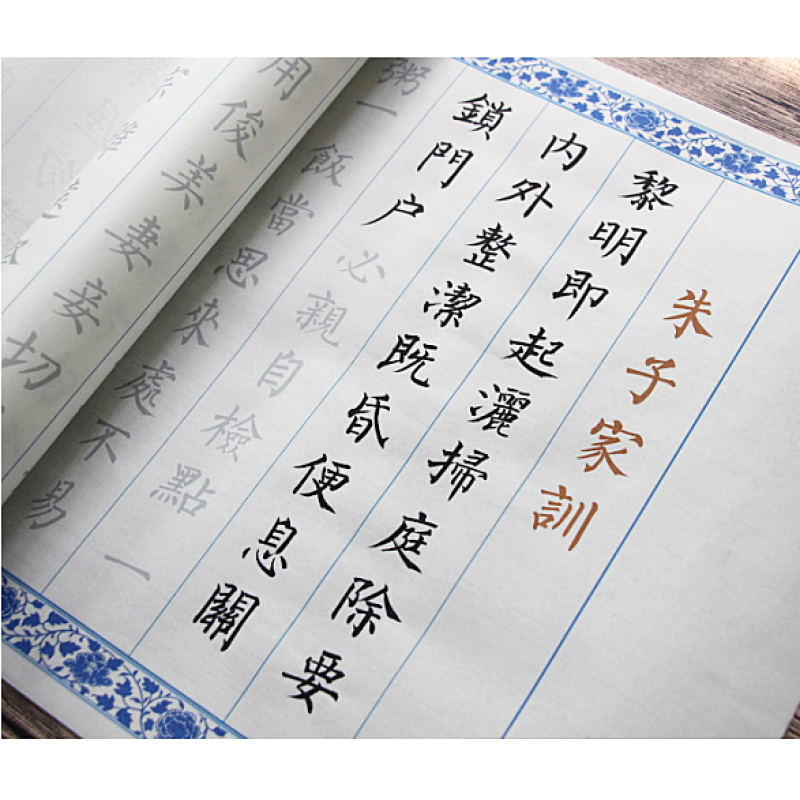 朱子家訓
黎明即起灑掃庭除要
内外整潔既昏便息關
鎖門户必親自檢點一
粥一飯當思來處不易
用俊美妻妾切